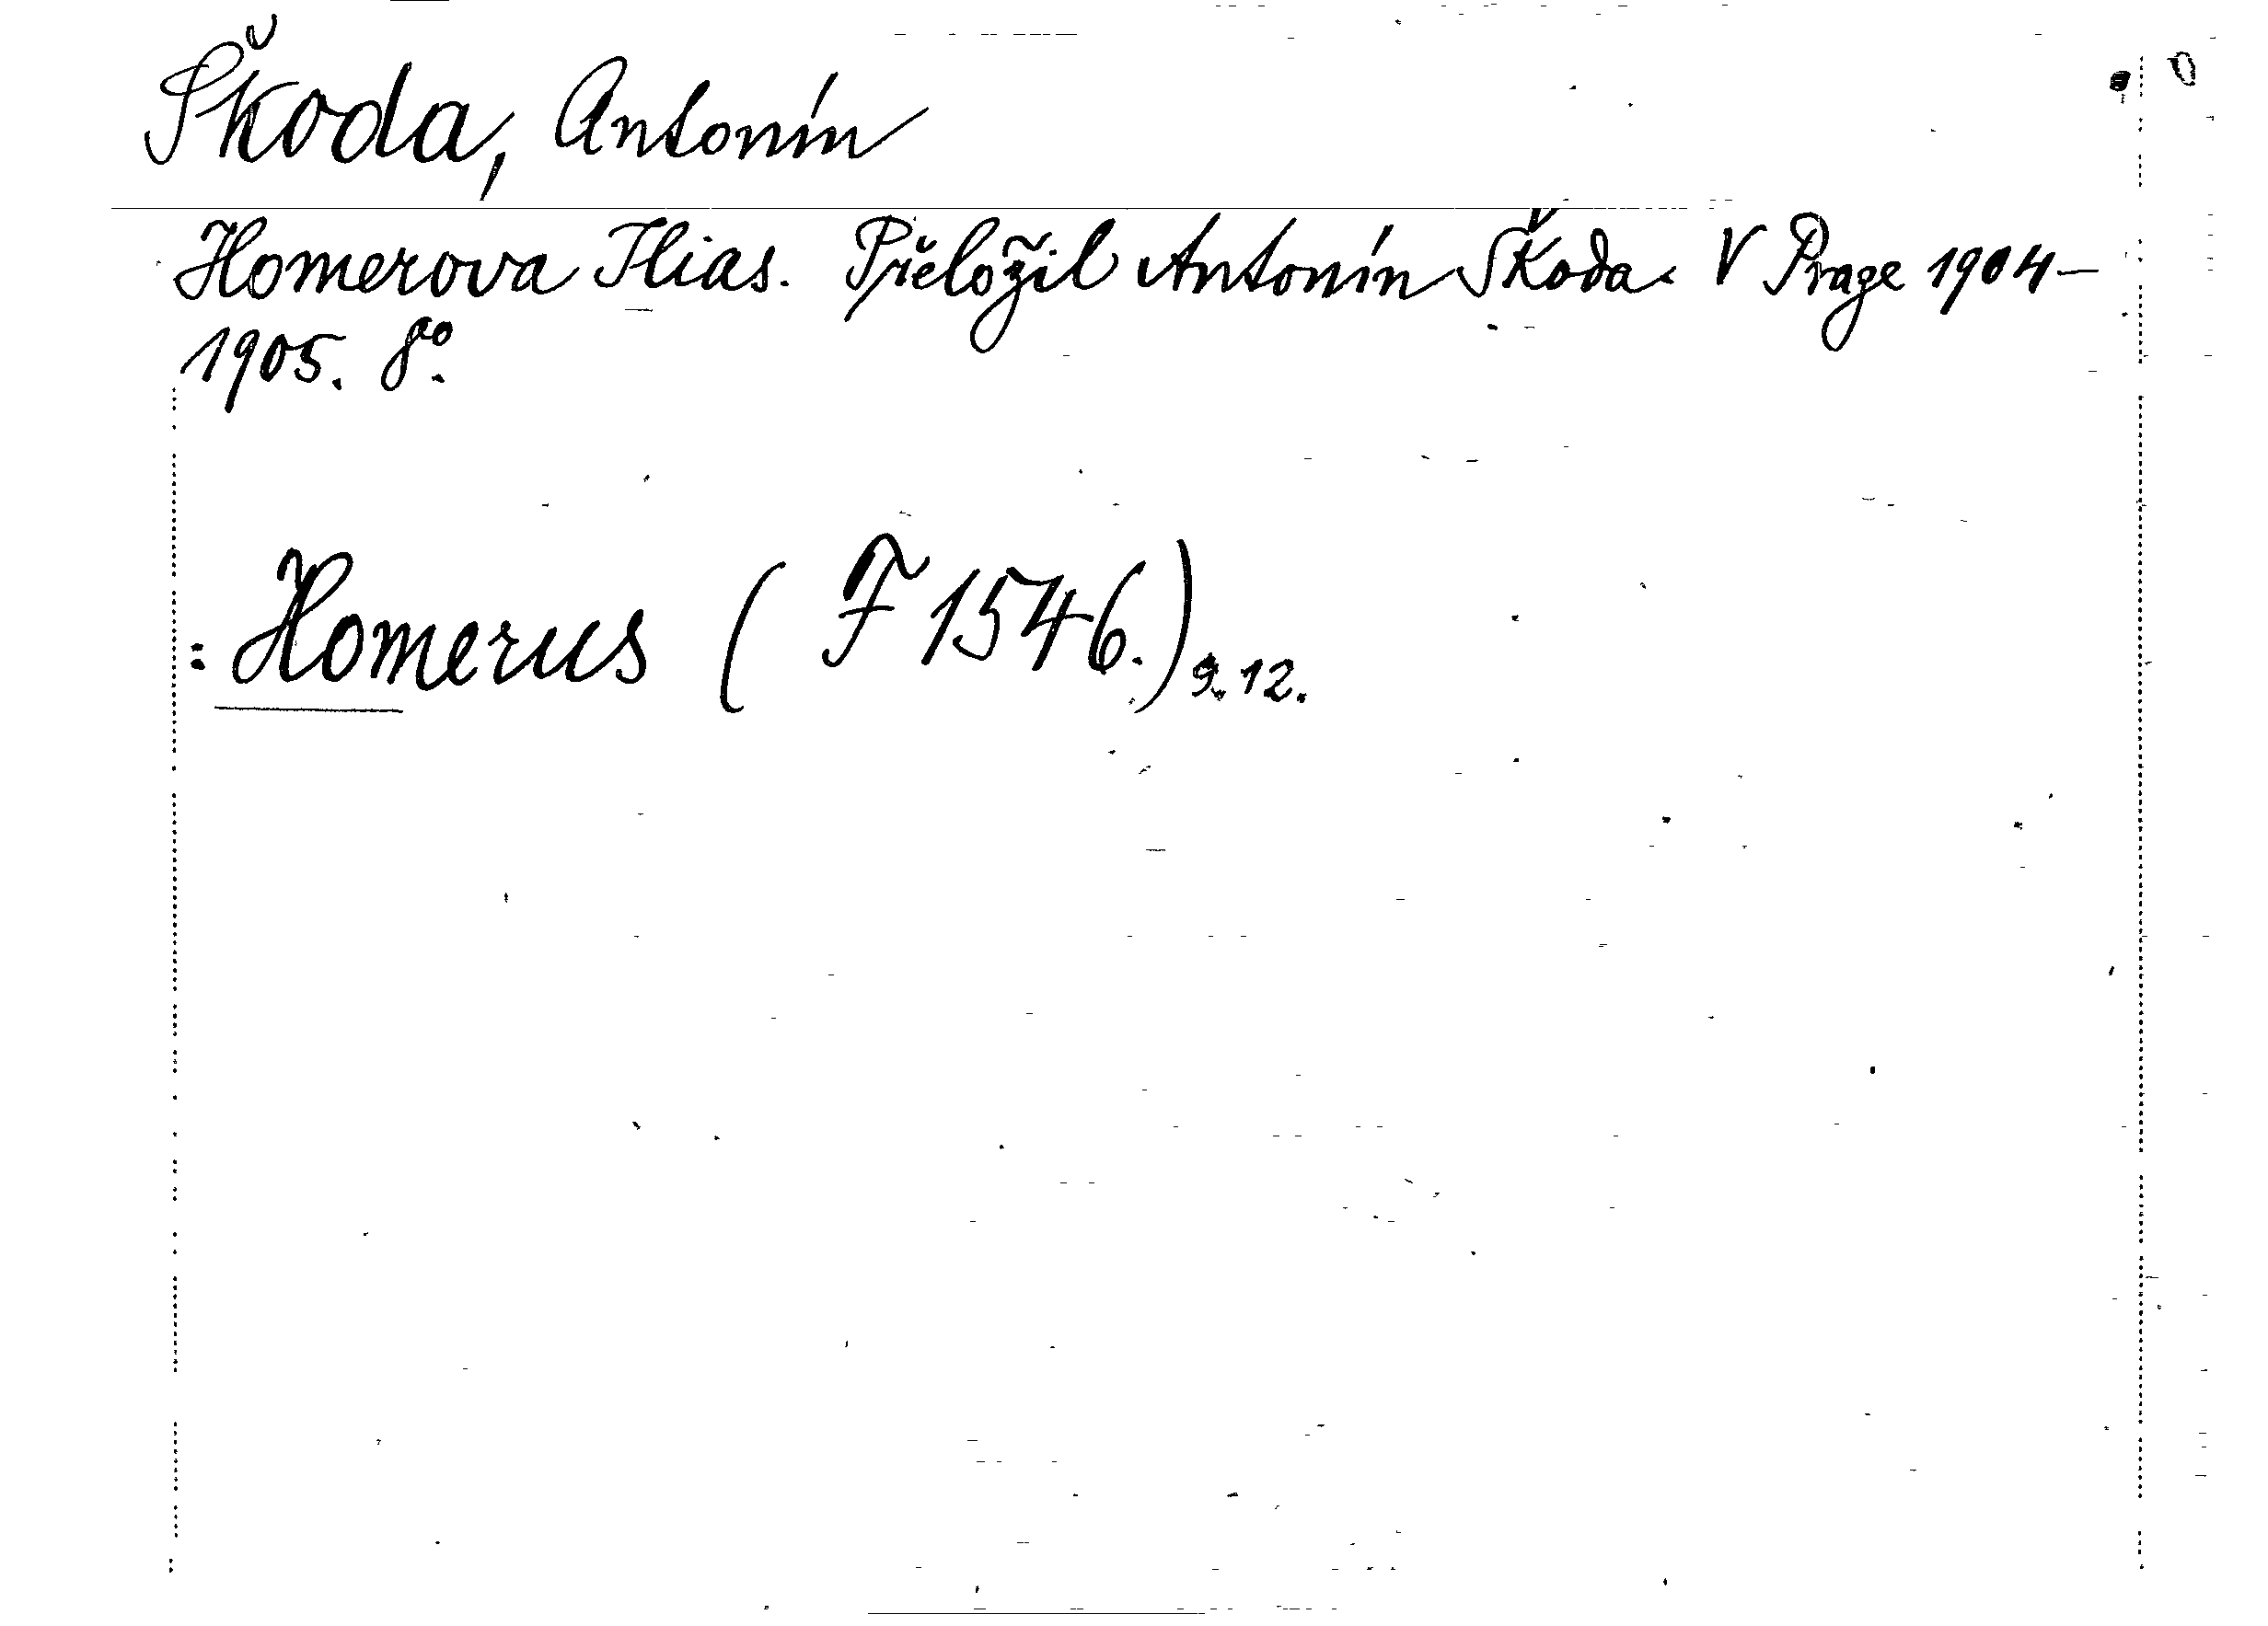 Škoda, Antonín
Homerova Ilias. Přeložil Antonín Škoda. V Praze 1904–
1905. 8º.
: Homerus ( F 1546.) 9.12.